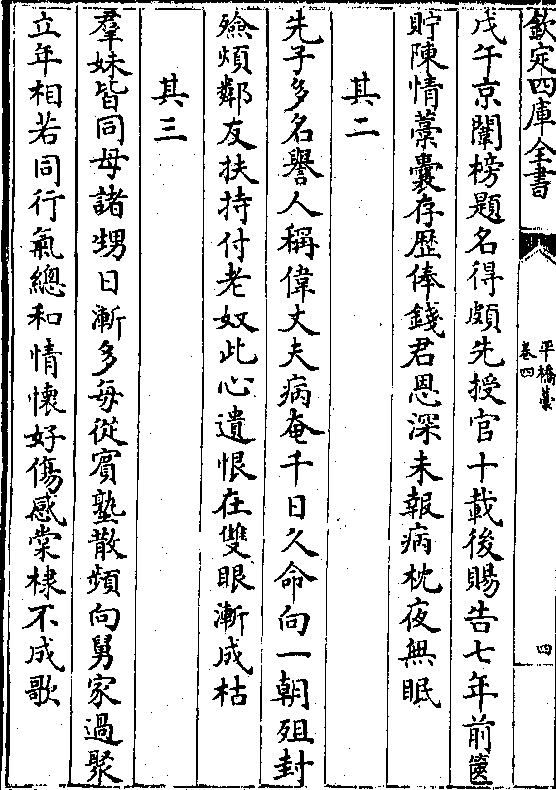 欽定四庫全書
平橋藁
卷四
四
戊午京闈榜題名得頗先授官十載後賜告七年前篋
貯陳情藁囊存歴俸錢君恩深未報病枕夜無眠
其二
先子多名譽人稱偉丈夫病奄千日久命向一朝殂封
殮煩鄰友扶持付老奴此心遺恨在雙眼漸成枯
其三
羣妹皆同母諸甥日漸多每從賓塾散頻向舅家過聚
立年相若同行氣總和情懷好傷感棠棣不成歌